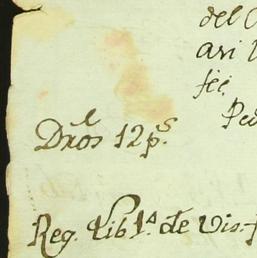 del
ari
fee
Pe
Dros 12 p.s
Reg. Lib 1.ª de Vis.